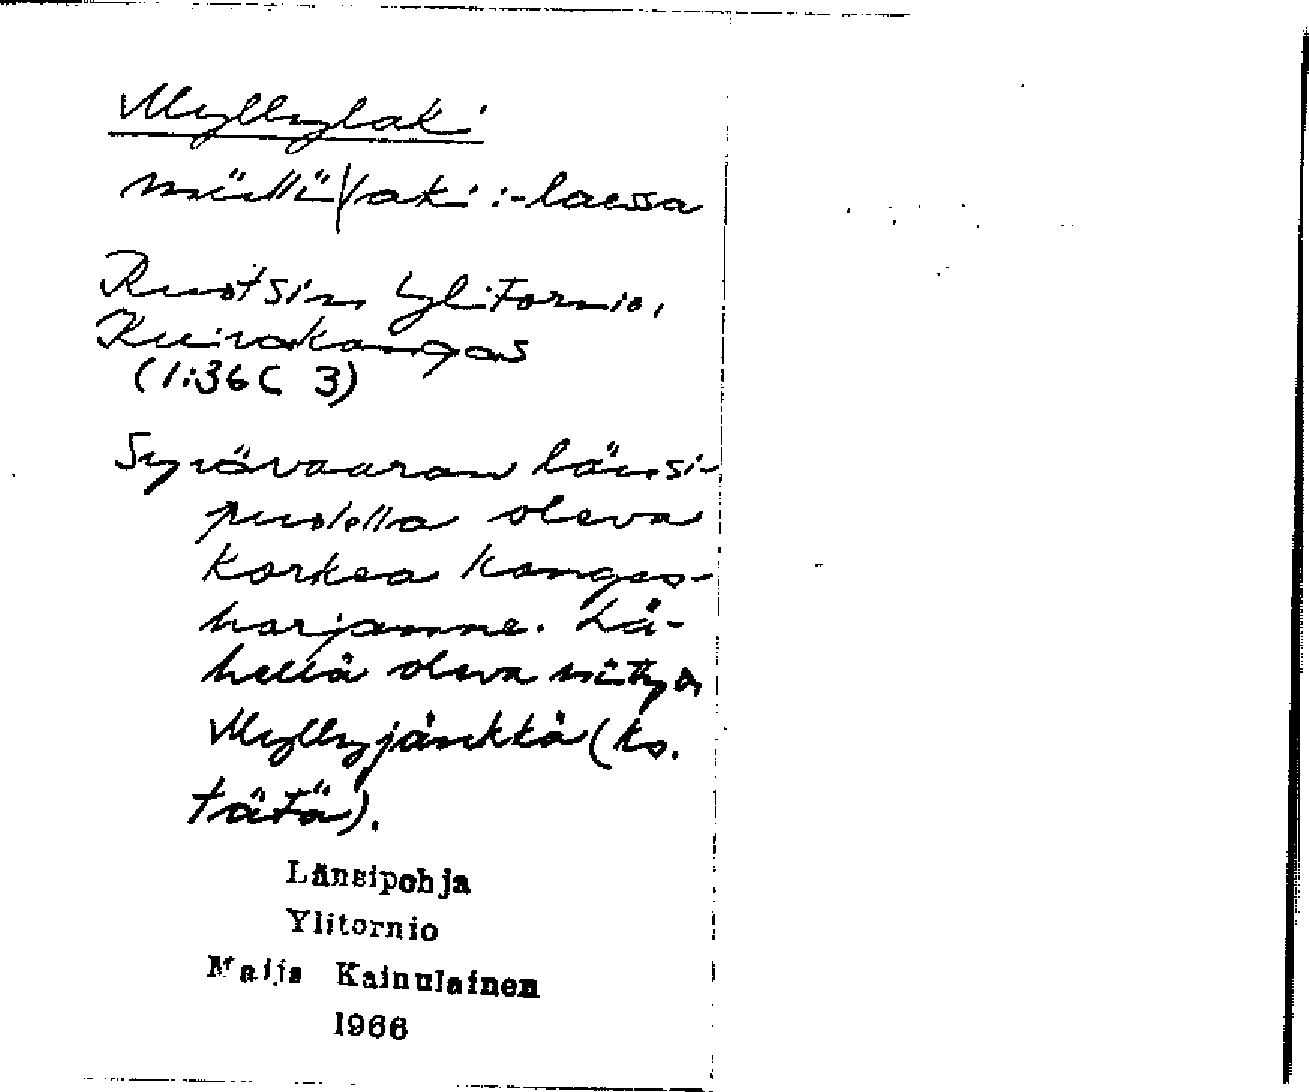 Myllylaki
müllü|laki :-laessa
Ruotsin Ylitornio,
Kuivakangas
(1:36 C 3)
Syvävaaran länsi-
puolella oleva
korkea kangas-
harjanne. Lä-
hellä oleva niitty on
Myllyjänkkä (ks.
tätä).
Länsipohja
Ylitornio
Maija Kainulainen
1966